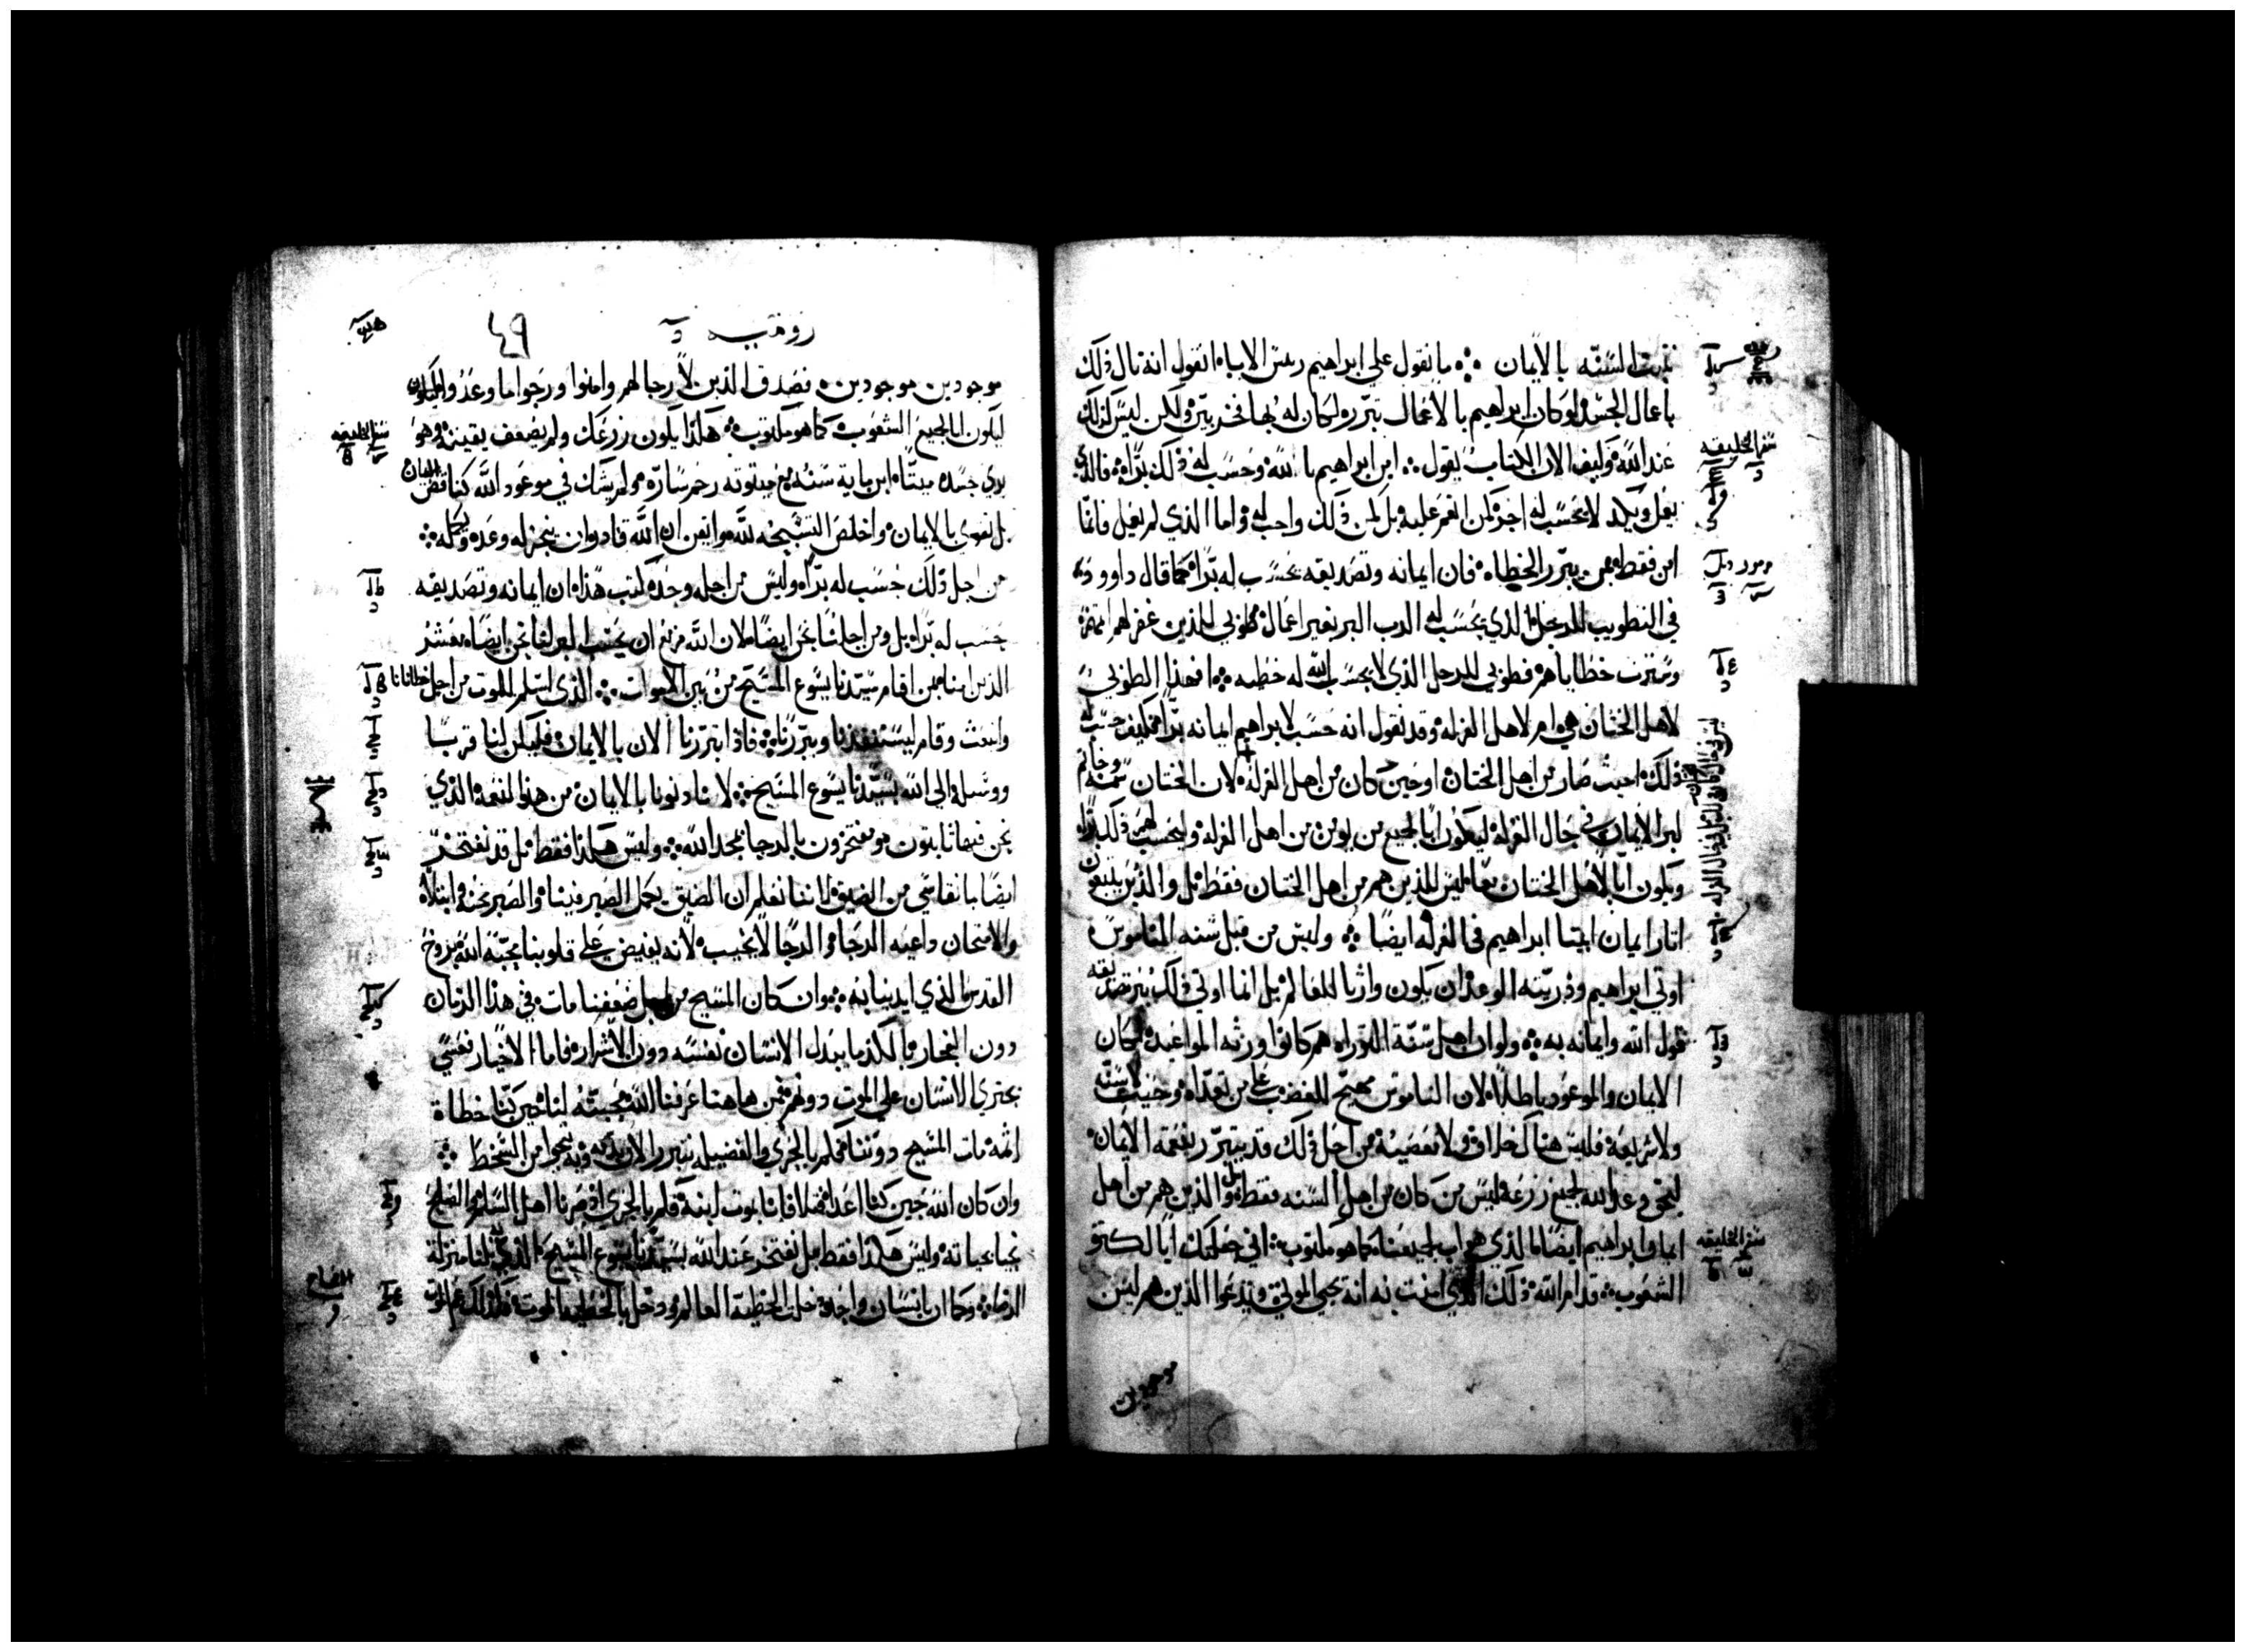 نثبت السنه بالايمان ܀ ما نقول على ابراهيم ريس الاباء انقول انه نال ذلك
باعمال الجسد لو كان ابراهيم بالاعمال تبرر ولكان له بها فخر ولكن ليس كذلك
عند الله وكيف الان الكتاب يقول ܀ امن ابراهيم بالله وحسب له ذلك برا فالذي
يعمل ويكد لا يحسب له اجره كمن انعم عليه بل كمن ذلك واجب له واما الذي لم يعمل فانما
امن فقط بمن يبرر الخطاه فان ايمانه وتصديقه يحسب له برا كما قال داوود
في التطويب للرجل الذي يحسب له الرب البر بغير اعمال طوبى للذين غفر لهم
وسترت خطاياهم فطوبى للرجل الذي لا يحسب الله له خطيه ܀ افهذا الطوبى
لاهل الختان هي ام لاهل الغرله وقد نقول انه حسب لابراهيم ايمانه برا فكيف حسب له
ذلك احيث صار من اهل الختان اوحين كان من اهل الغرله لان الختان سمه وخاتم
لبر الايمان في حال الغرله ليكون ابا لجميع من يومن من اهل الغرله وليحسب لهم ذلك برا
ويكون ابا لاهل الختان معا ليس للذين هم من اهل الختان فقط بل والذين يتبعون
اثار ايمان ابينا ابراهيم في الغرله ايضا ܀ وليس من قبل سنه الناموس
اوتي ابراهيم وذريته الوعد ان يكون وارثا للعالم بل انما اوتي ذلك ببر تصديقه
قول الله وايمانه به ܀ ولو ان اهل سنة التوراه هم كانوا ورثه المواعيد لكان
الايمان والموعود باطلا لان الناموس مهيج للغضب على من تعداه وحيث لا سنه
ولا شريعه فليس هناك خلاف ولا معصيه من اجل ذلك قد يتبرر بنعمه الايمان
ليحق وعد الله لجميع زرعه ليس من كان من اهل السنه فقط بل والذين هم من اهل
ايمان ابراهيم ايضا الذي هو اب لجميعنا كما هو مكتوب ܀ اني جعلتك ابا لكثره
الشعوب ܀ قدام الله ذلك الذي امنت به انه يحيي الموتى ويدعوا الذين هم ليس
موجودين
سفر الخليقه
مزمور
سفر الخليقه
روميه
٤٩
موجودين موجودين فصدق الذين لا رجا لهم وامنوا ورجوا ما وعدوا
ليكون ابا لجميع الشعوب كما هو مكتوب ܀ هكذا يكون زرعك ولم يضعف يقينه وهو
يري جسده ميتا ابن مايه سنه مع ميتوته رحم ساره ولم يشك في موعود الله كناقص الايمان
بل تقوى بالايمان واخلص التسبيحه لله وايقن ان الله قادر وان ينجز له وعده ويكمله ܀
من اجل ذلك حسب له برا وليس من اجله وحده كتب هذا ان ايمانه وتصديقه
حسب له برا بل ومن اجلنا نحن ايضا لان الله مزمع ان يحسب البر لنا نحن ايضا معشر
الذين امنا بمن اقام سيدنا يسوع المسيح من بين الاموات ܀ الذي اسلم للموت من اجل خطايانا
وانبعث وقام ليستنقذنا ويبررنا ܀ فاذا بتبررنا الان بالايمان فليكن لنا قربا
ووسيله الى الله بسيدنا يسوع المسيح ܀ لانا دنونا بالايمان من هذه النعمه الذي
نحن فيها ثابتون ومفتخرون بالرجا بمجد الله ܀ وليس هكذا فقط بل قد نفتخر
ايضا بما نقاسي من الضيق لاننا نعلم ان الضيق يكمل الصبر فينا والصبر محنه وابتلاء
والامتحان داعيه الرجا والرجا لا يخيب لانه يفيض على قلوبنا محبه الله بروح
القدس الذي ايدينا به ܀ وان كان المسيح من اجل ضعفنا مات في هذا الزمان
دون الفجار بالكد ما يبدل الانسان نفسه دون الاشرار فاما الاخيار فعسى
يجتري الانسان على الموت دونهم فمن هاهنا عرفنا الله محبته لنا حين كنا خطاة
انه مات المسيح دوننا فكم بالحري والفضيله نتبرر الان بدمه وبه ننجوا من السخط ܀
وان كان الله حين كنا اعدا قبلا فاتانا بموت ابنه فكم بالحري اذ صرنا اهل السلم والصلح
نحيا بحياته وليس هكذا فقط بل نفتخر عند الله بسيدنا يسوع المسيح الذي به نلنا منزلة
الرضا ܀ وكما ان بانسان واحد دخلت الخطيه العالم ودخل بالخطيه الموت
سفر الخليقه